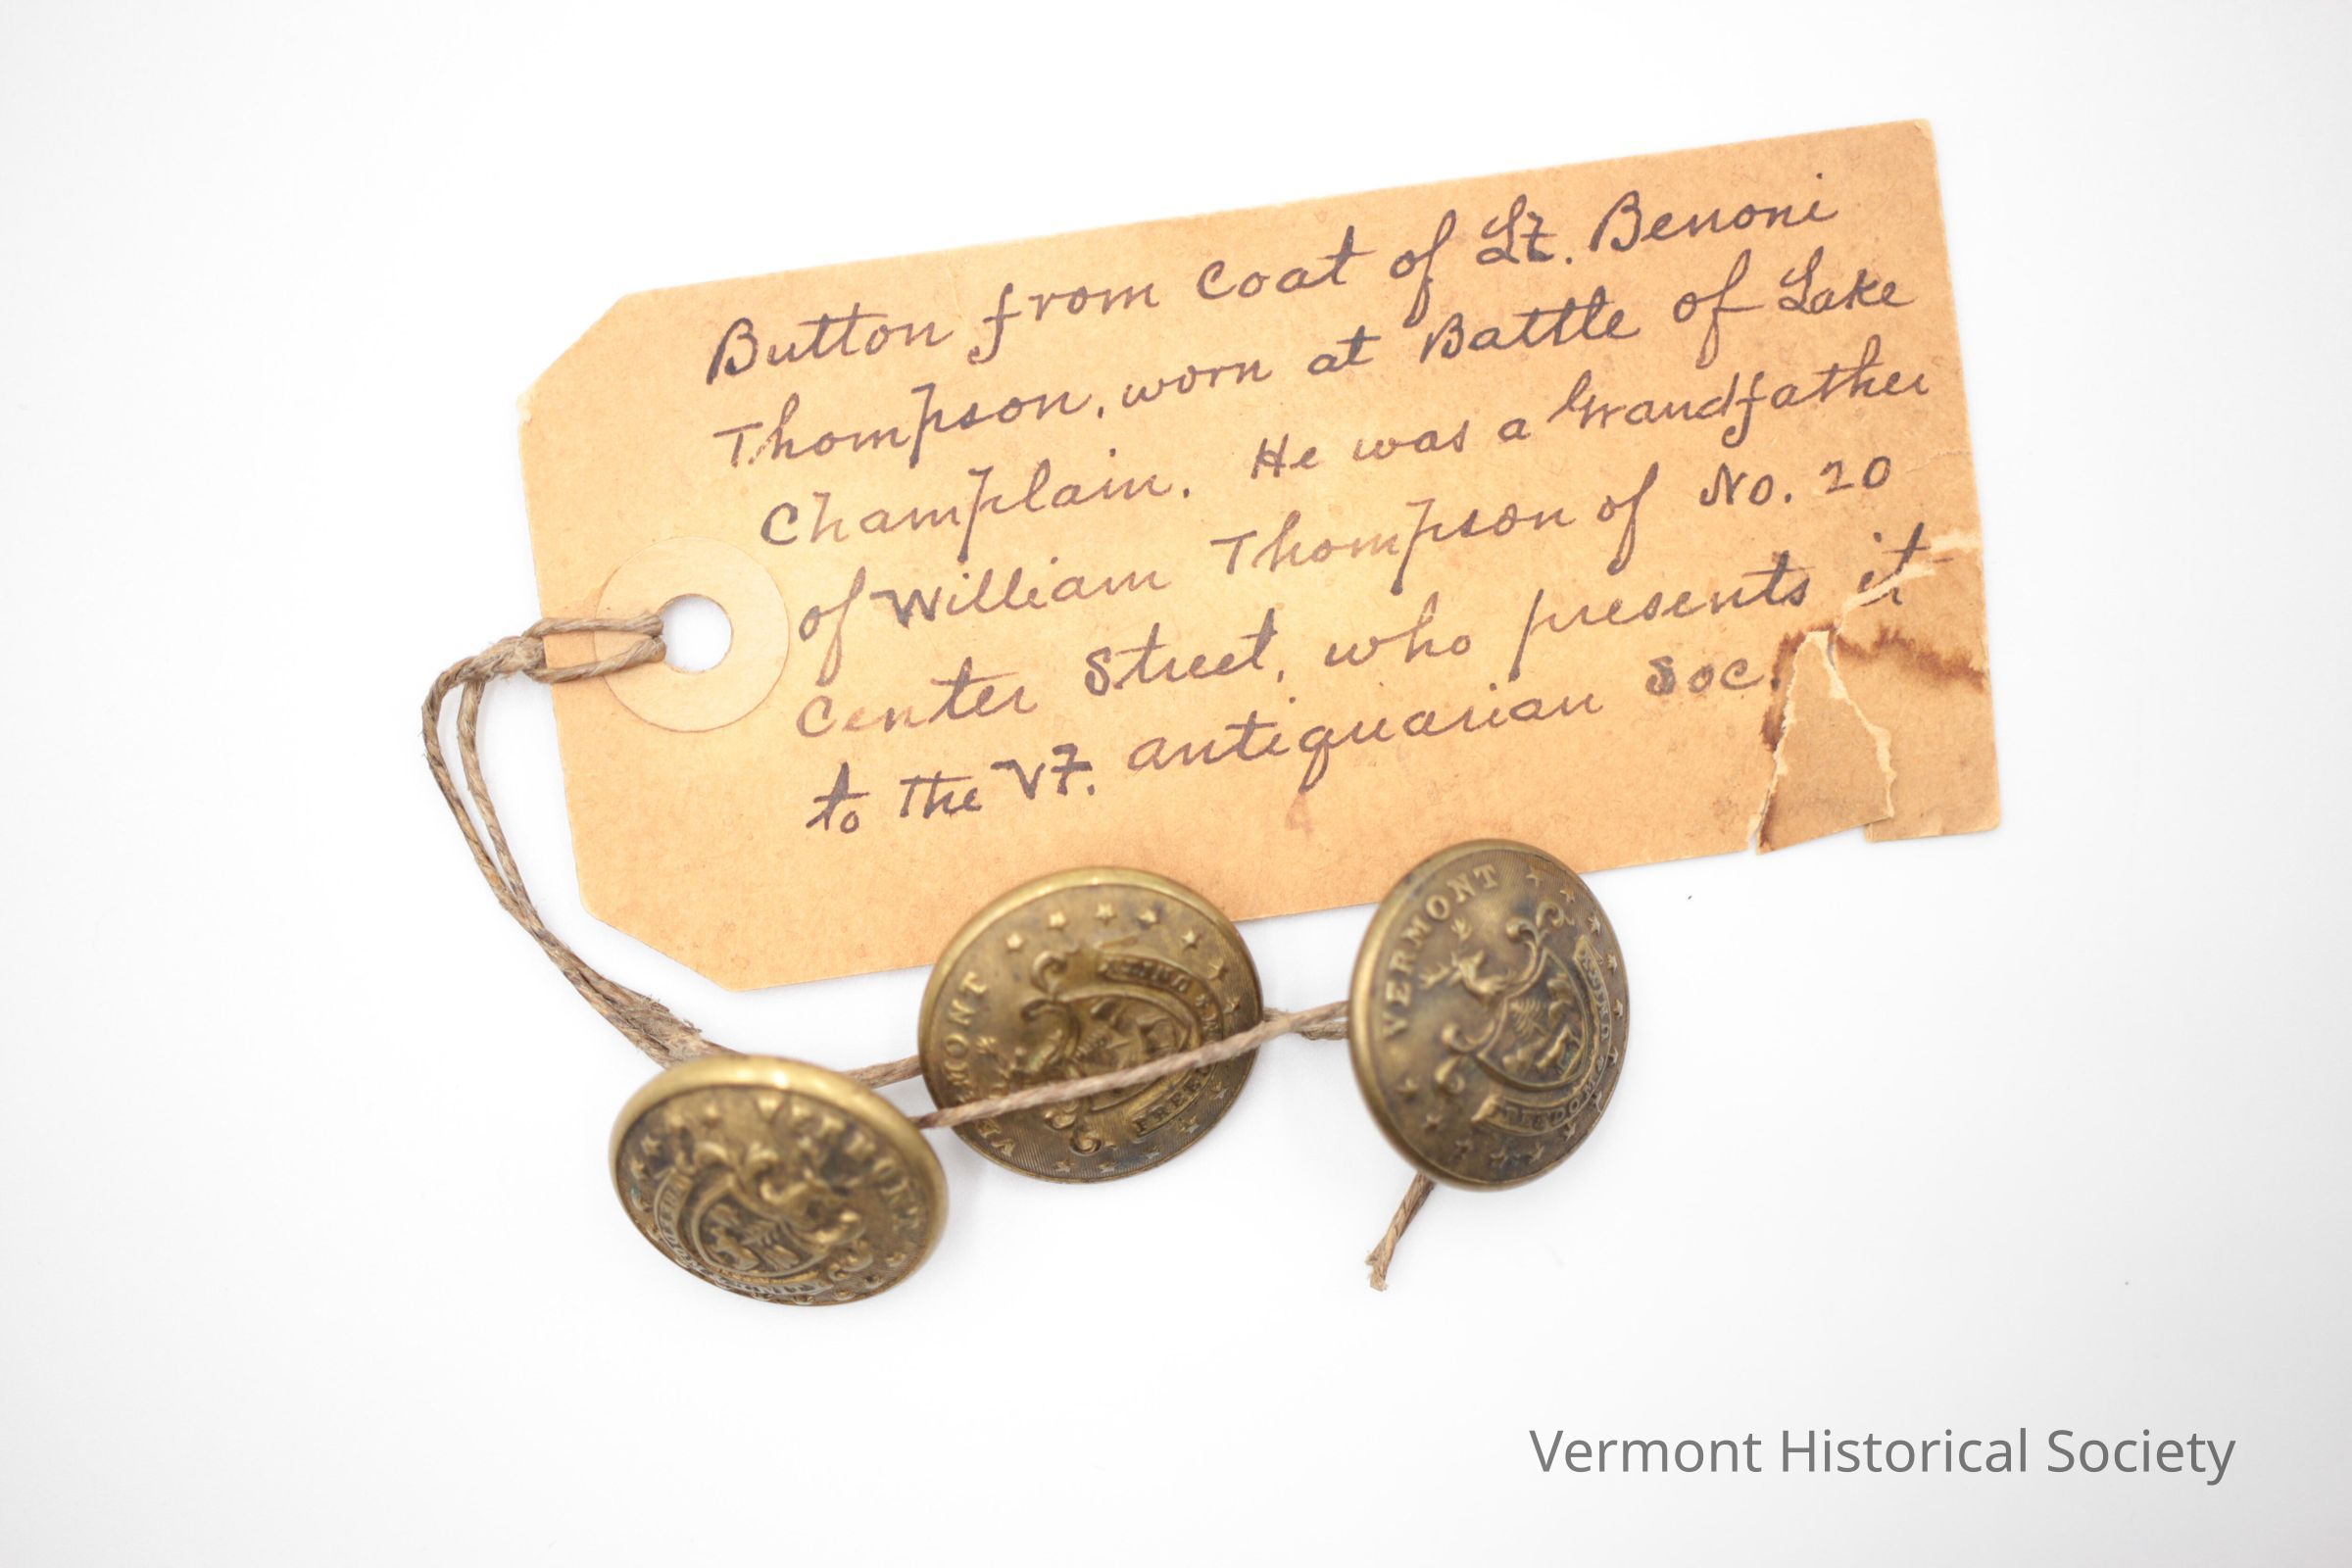 Button from Coat of Lt. Benoni
Thompson, worn at Battle of Lake
Champlain. He was a Grandfather
of William Thompson of No. 20
Center Street, who presents it
to the Vt. Antiquarian Soc.
VERMONT
FREEDOM
VERMONT
FREEDOM &
VERMONT
Vermont Historical Society